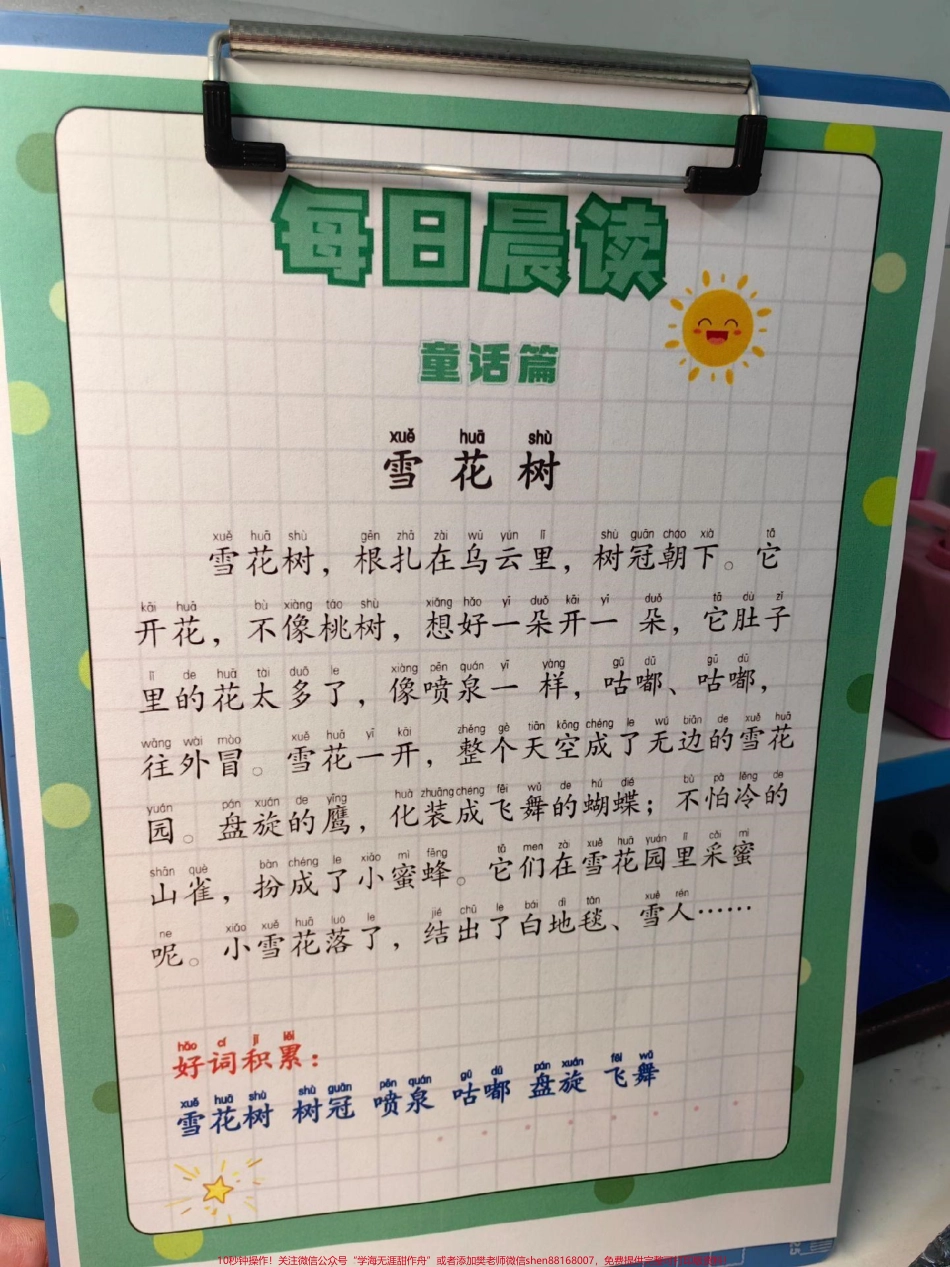 每日晨读
童话篇
xuě huā shù
雪花树
xuě huā shù gēn zhā zài wū yún lǐ shù guān cháo xià tā
雪花树，根扎在乌云里，树冠朝下。它
kāi huā bù xiàng táo shù xiǎng hǎo yì duǒ kāi yì duǒ tā dù zǐ
开花，不像桃树，想好一朵开一 朵，它肚子
lǐ de huā tài duō le xiàng pēn quán yī yàng gū dū gū dū
里的花太多了，像喷泉一 样，咕嘟、咕嘟，
wǎng wài mào xuě huā yī kāi zhěng gè tiān kōng chéng le wú biān de xuě huā
往外冒。雪花一开，整个天空成了无边的雪花
yuán pán xuán de yīng huà zhuāng chéng fēi wǔ de hú dié bù pà lěng de
园。盘旋的鹰，化装成飞舞的蝴蝶；不怕冷的
shān què bàn chéng le xiǎo mì fēng tā men zài xuě huā yuán lǐ cǎi mì
山雀，扮成了小蜜蜂。它们在雪花园里采蜜
ne xiǎo xuě huā luò le jiē chū le bái dì tǎn xuě rén
呢。小雪花落了，结出了白地毯、雪人……
hǎo cí jī lěi
好词积累：
xuě huā shù shù guān pēn quán gū dū pán xuán fēi wǔ
雪花树 树冠 喷泉 咕嘟 盘旋 飞舞
10秒钟操作！关注微信公众号“学海无涯甜作舟”或者添加樊老师微信shen88168007，免费提供